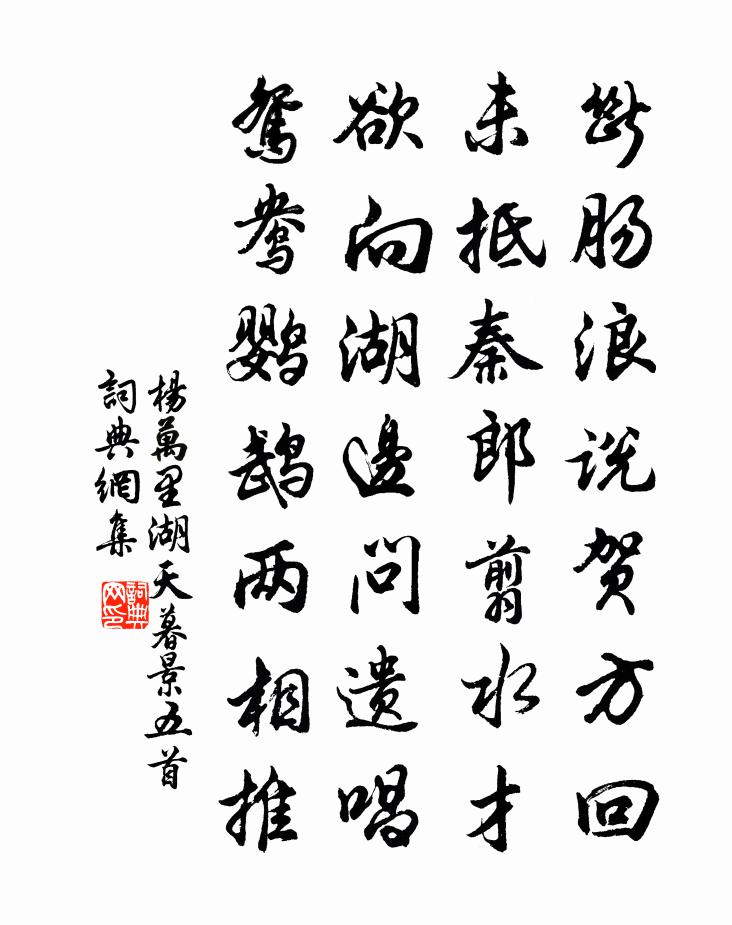 斷肠浪说贺方回
未抵秦郎剪水才
欲向湖邊问遗唱
鸳鸯鹦鹉两相推
楊萬里湖天暮景五首
詞典網集
詞典网印